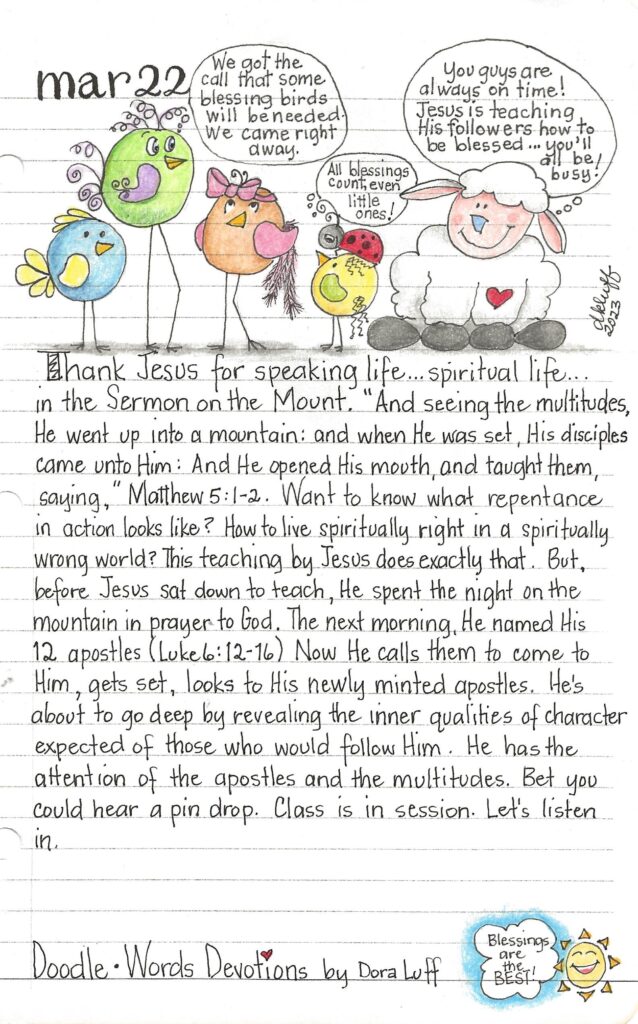 mar 22
We got the
call that some
blessing birds
will be needed.
We came right
away.
All blessings
count, even
little
ones!
You guys are
always on time!
Jesus is teaching
His followers how to
be blessed... you'll
all be
busy!
dkluff
2023
Thank Jesus for speaking life... spiritual life...
in the Sermon on the Mount. "And seeing the multitudes,
He went up into a mountain: and when He was set, His disciples
came unto Him: And He opened His mouth, and taught them,
saying," Matthew 5:1-2. Want to know what repentance
in action looks like? How to live spiritually right in a spiritually
wrong world? This teaching by Jesus does exactly that. But,
before Jesus sat down to teach, He spent the night on the
mountain in prayer to God. The next morning, He named His
12 apostles (Luke 6:12-16) Now He calls them to come to
Him, gets set, looks to His newly minted apostles. He's
about to go deep by revealing the inner qualities of character
expected of those who would follow Him. He has the
attention of the apostles and the multitudes. Bet you
could hear a pin drop. Class is in session. Let's listen
in.
Blessings
are
the
BEST!
Doodle • Words Devotions by Dora Luff